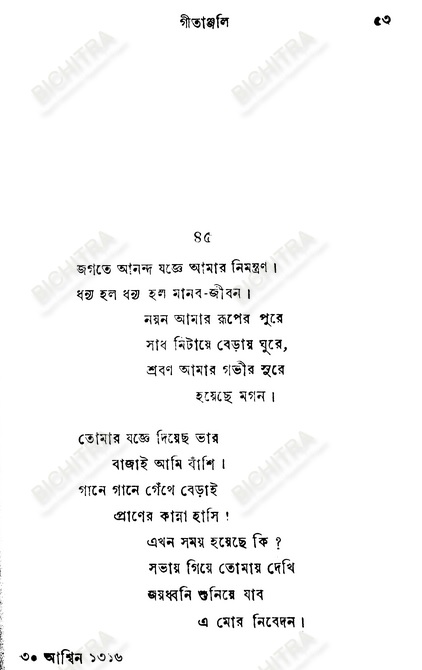 গীতাঞ্জলি ৫৩
৪৫
জগতে আনন্দ যজ্ঞে আমার নিমন্ত্রণ।
ধন্য হল ধন্য হল মানব-জীবন।
নয়ন আমার রূপের পুরে
সাধ মিটায়ে বেড়ায় ঘুরে,
শ্রবণ আমার গভীর সুরে
হয়েছে মগন।
তোমার যজ্ঞে দিয়েছ ভার
বাজাই আমি বাঁশি।
গানে গানে গেঁথে বেড়াই
প্রাণের কান্না হাসি!
এখন সময় হয়েছে কি?
সভায় গিয়ে তোমায় দেখি
জয়ধ্বনি শুনিয়ে যাব
এ মোর নিবেদন।
৩০ আশ্বিন ১৩১৬
BICHITRA
BICHITRA
BICHITRA
BICHITRA
BICHITRA
BICHITRA
BICHITRA
BICHITRA